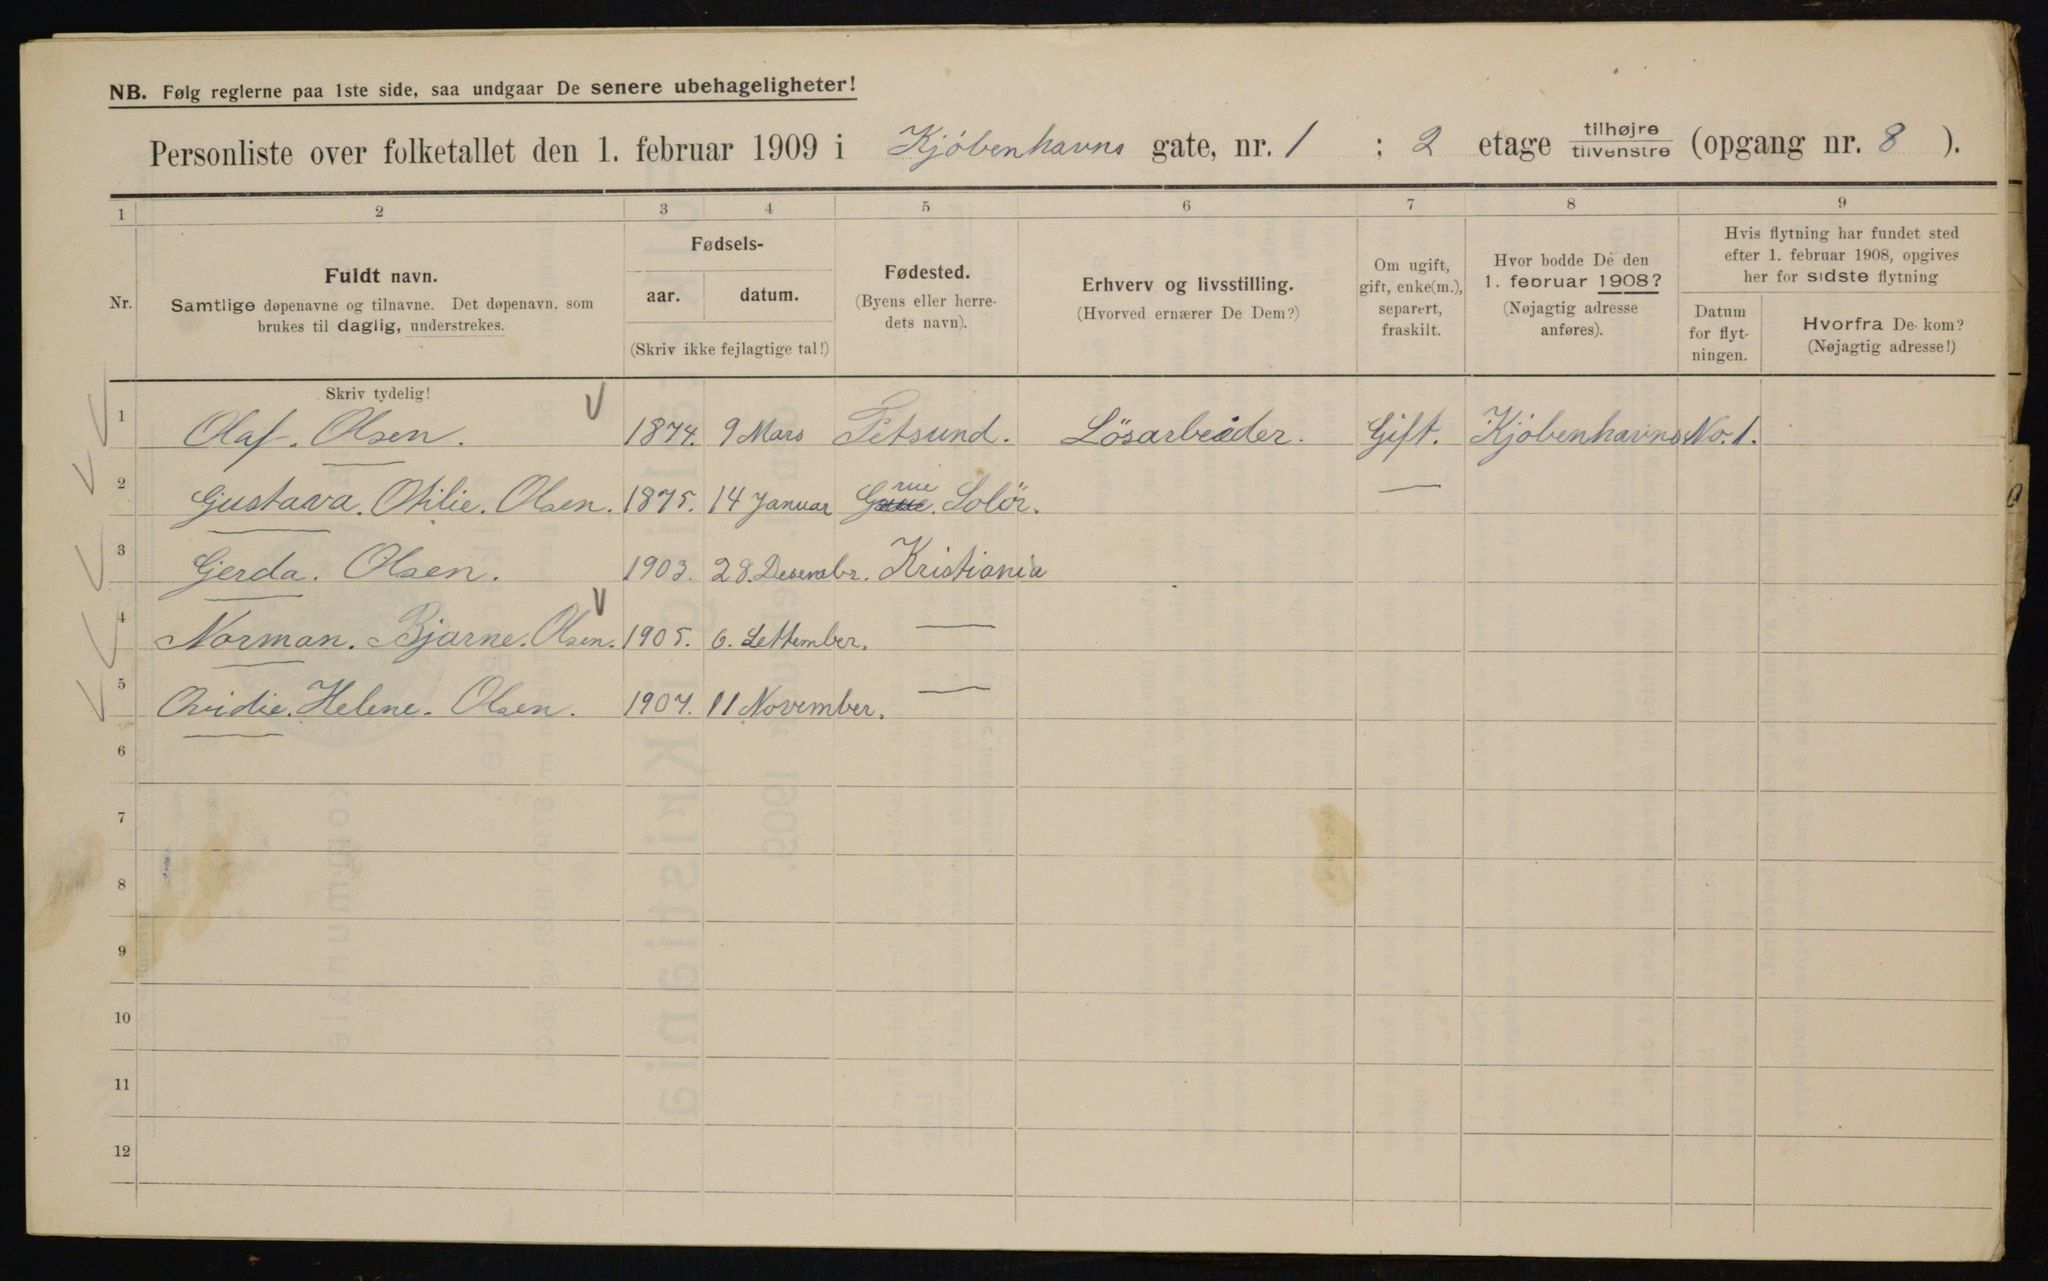 NB. Følg reglerne paa 1ste side, saa undgaar De senere ubehageligheter!
Personliste over folketallet den 1. februar 1909 i Kjöbenhavns gate, nr. 1 ; 2 etage tilhøjre tilvenstre (opgang nr. 8 ).
1 2 3 4 5 6 7 8 9
Nr.
Fuldt navn.
Samtlige døpenavne og tilnavne. Det døpenavn, som
brukes til daglig, understrekes.
Fødsels-
aar. datum.
(Skriv ikke fejlagtige tal!)
Fødested.
(Byens eller herre-
dets navn).
Erhverv og livsstilling.
(Hvorved ernærer De Dem?)
Om ugift,
gift, enke(m.),
separert,
fraskilt.
Hvor bodde De den
1. februar 1908?
(Nøjagtig adresse
anføres).
Hvis flytning har fundet sted
efter 1. februar 1908, opgives
her for sidste flytning
Datum
for flyt-
ningen.
Hvorfra De kom?
(Nøjagtig adresse!)
Skriv tydelig!
1 Olaf. Olsen. 1874. 9 Mars Fetsund. Lösarbeider. Gift. Kjöbenhavns No. 1.
2 Gustava. Otilie. Olsen. 1875. 14 Januar Grue. Solör. —
3 Gerda. Olsen. 1903. 28. Desembr. Kristiania
4 Norman. Bjarne. Olsen. 1905. 6. Settember. —
5 Ovidie. Helene. Olsen. 1907. 11 November. —
6
7
8
9
10
11
12